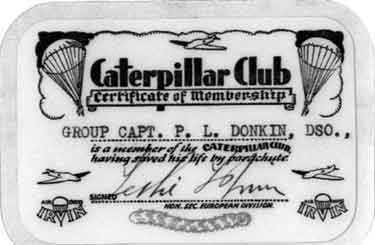 Caterpillar Club
Certificate of Membership
GROUP CAPT. P. L. DONKIN, DSO.,
is a member of the CATERPILLAR CLUB
having saved his life by parachute
SIGNED Leslie Irvin
HON. SEC. EUROPEAN DIVISION.
IRVIN IRVIN